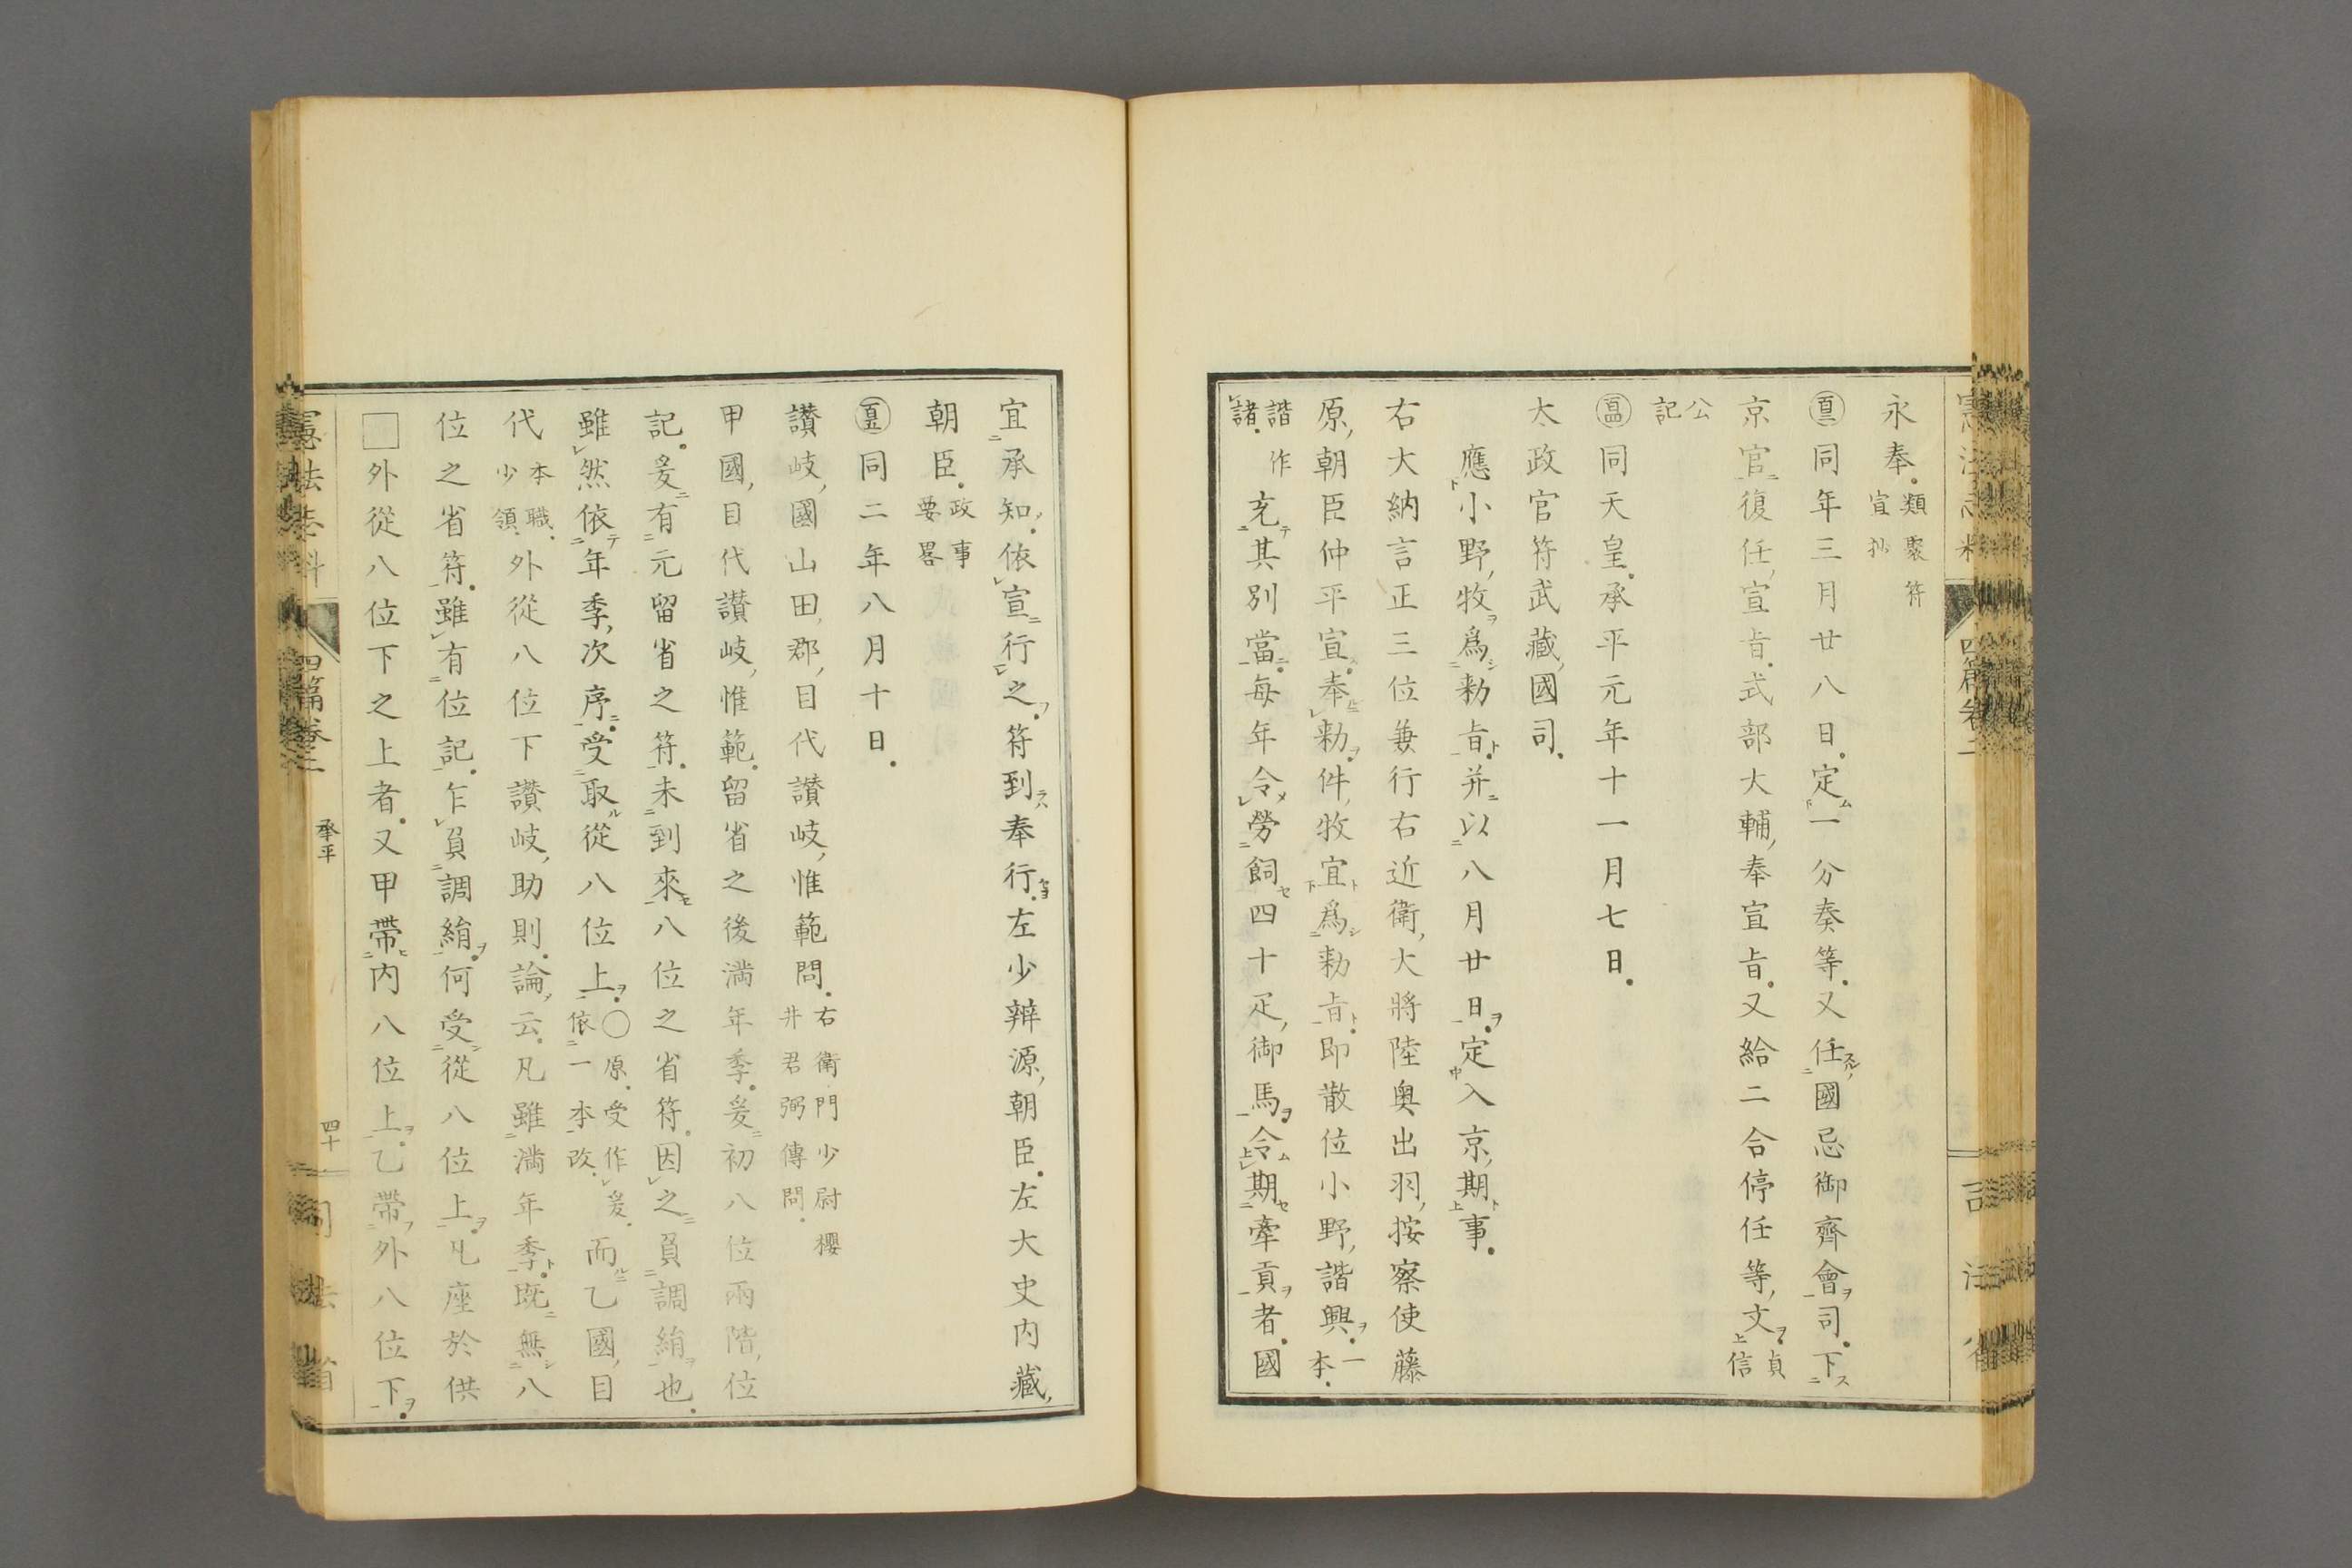 永奉。類聚符宣抄
同年三月廿八日。定一分奏等。又任國忌御齊會司。下
京官復任宣旨。式部大輔奉宣旨。又給二合停任等文。貞信
公記
同天皇。承平元年十一月七日。
太政官符武藏國司。
應小野牧爲勅旨并以八月廿日定入京期事。
右大納言正三位兼行右近衛大將陸奧出羽按察使藤
原朝臣仲平宣。奉勅。件牧宜爲勅旨。即散位小野諧興。一本。
諧作諸。充其別當。每年令勞飼四十疋御馬令期牽貢者。國
宜承知。依宣行之。符到奉行。左少辨源朝臣。左大史内藏
朝臣。政事要畧
同二年八月十日。
讃岐國山田郡目代讃岐惟範問。右衛門少尉櫻井君弼傳問。
甲國目代讃岐惟範。留省之後滿年季。爰初八位兩階位
記。爰有元留省之符。未到來八位之省符。因之負調絹也。
雖然依年季次序。受取從八位上。○原。受作爰。依一本改。而乙國目
代本職。少領。外從八位下讃岐助則。論云。凡雖滿年季。既無八
位之省符。雖有位記。乍負調絹。何受從八位上。凡座於供
□外從八位下之上者。又甲帶内八位上。乙帶外八位下。
憲法志料 四篇卷二 承平 四十 司法省